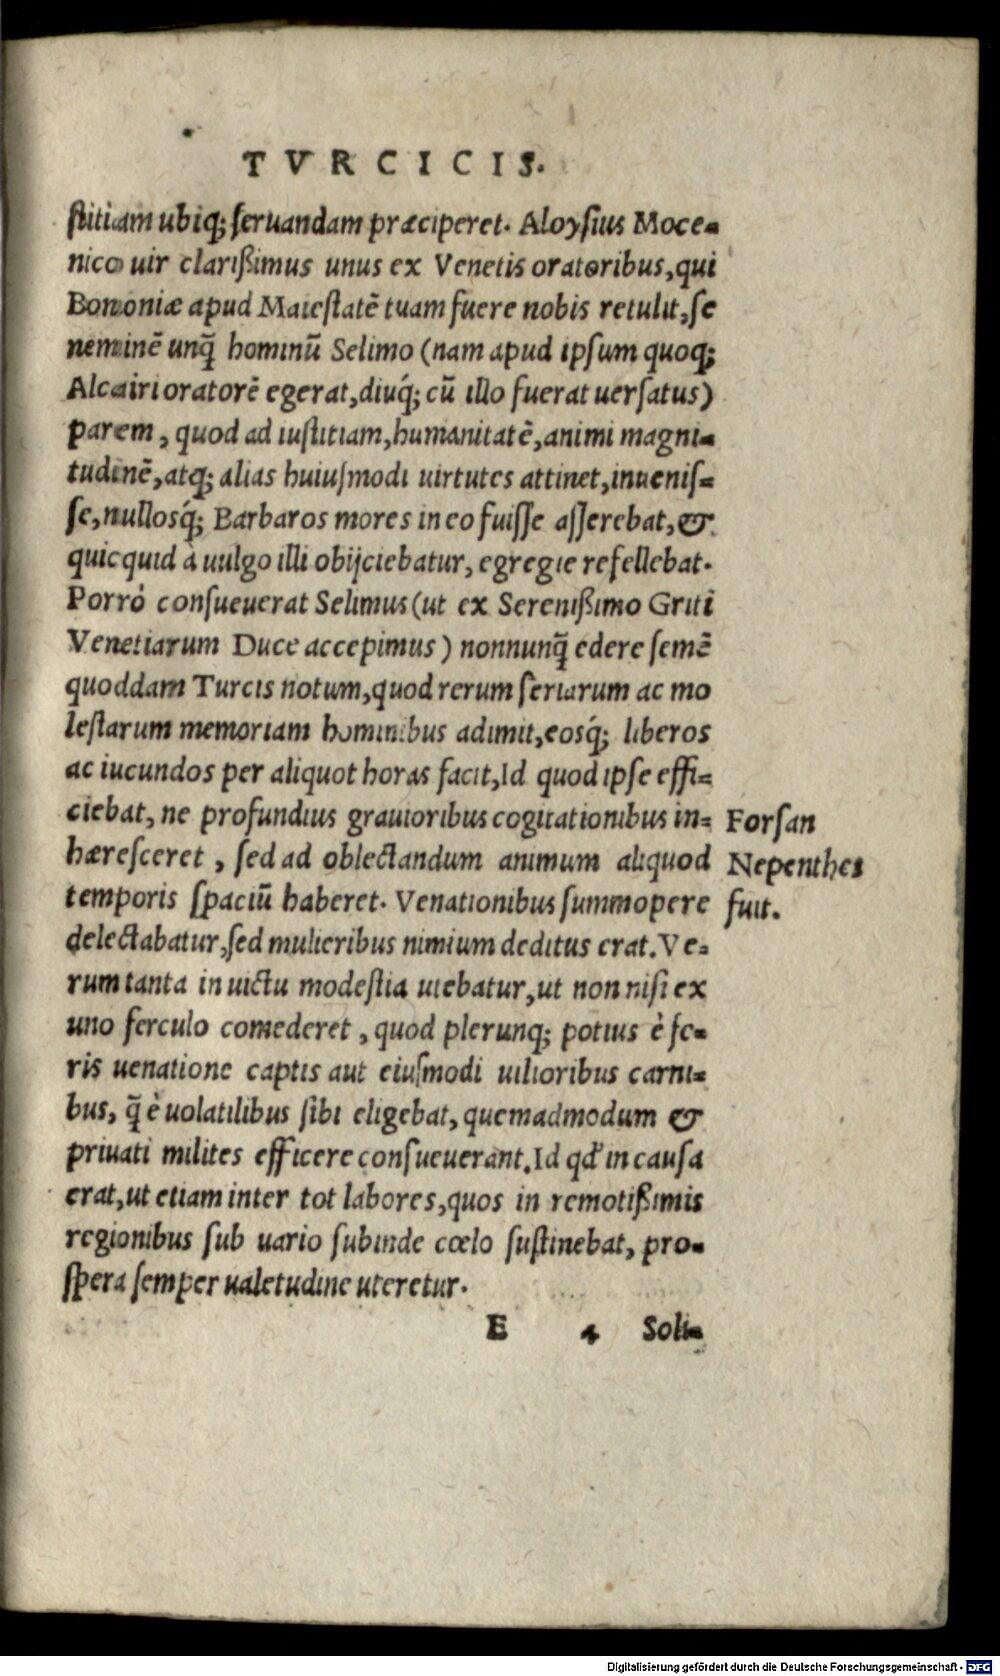 TVRCICIS.
stitiam ubiq; seruandam præciperet. Aloysius Moce=
nico uir clarißimus unus ex Venetis oratoribus, qui
Bononiæ apud Maiestatē tuam fuere nobis retulit, se
neminē unq̄ hominū Selimo (nam apud ipsum quoq;
Alcairi oratorē egerat, diuq́; cū illo fuerat uersatus)
parem, quod ad iustitiam, humanitatē, animi magni=
tudinē, atq; alias huiusmodi uirtutes attinet, inuenis=
se, nullosq́; Barbaros mores in eo fuisse asserebat, &
quicquid à uulgo illi obijciebatur, egregie refellebat.
Porrò consueuerat Selimus (ut ex Serenißimo Griti
Venetiarum Duce accepimus) nonnunq̄ edere semē
quoddam Turcis notum, quod rerum seriarum ac mo
lestarum memoriam hominibus adimit, eosq́; liberos
ac iucundos per aliquot horas facit, Id quod ipse effi=
ciebat, ne profundius grauioribus cogitationibus in=
hæresceret, sed ad oblectandum animum aliquod
temporis spaciū haberet. Venationibus summopere
delectabatur, sed mulieribus nimium deditus erat. Ve=
rum tanta in uictu modestia utebatur, ut non nisi ex
uno ferculo comederet, quod plerunq; potius è fe=
ris uenatione captis aut eiusmodi uilioribus carni=
bus, q̄ è uolatilibus sibi eligebat, quemadmodum &
priuati milites efficere consueuerant. Id qd' in causa
erat, ut etiam inter tot labores, quos in remotißimis
regionibus sub uario subinde cœlo sustinebat, pro=
spera semper ualetudine uteretur.
Forsan
Nepenthes
fuit.
E 4 Soli=
Digitalisierung gefördert durch die Deutsche Forschungsgemeinschaft - DFG